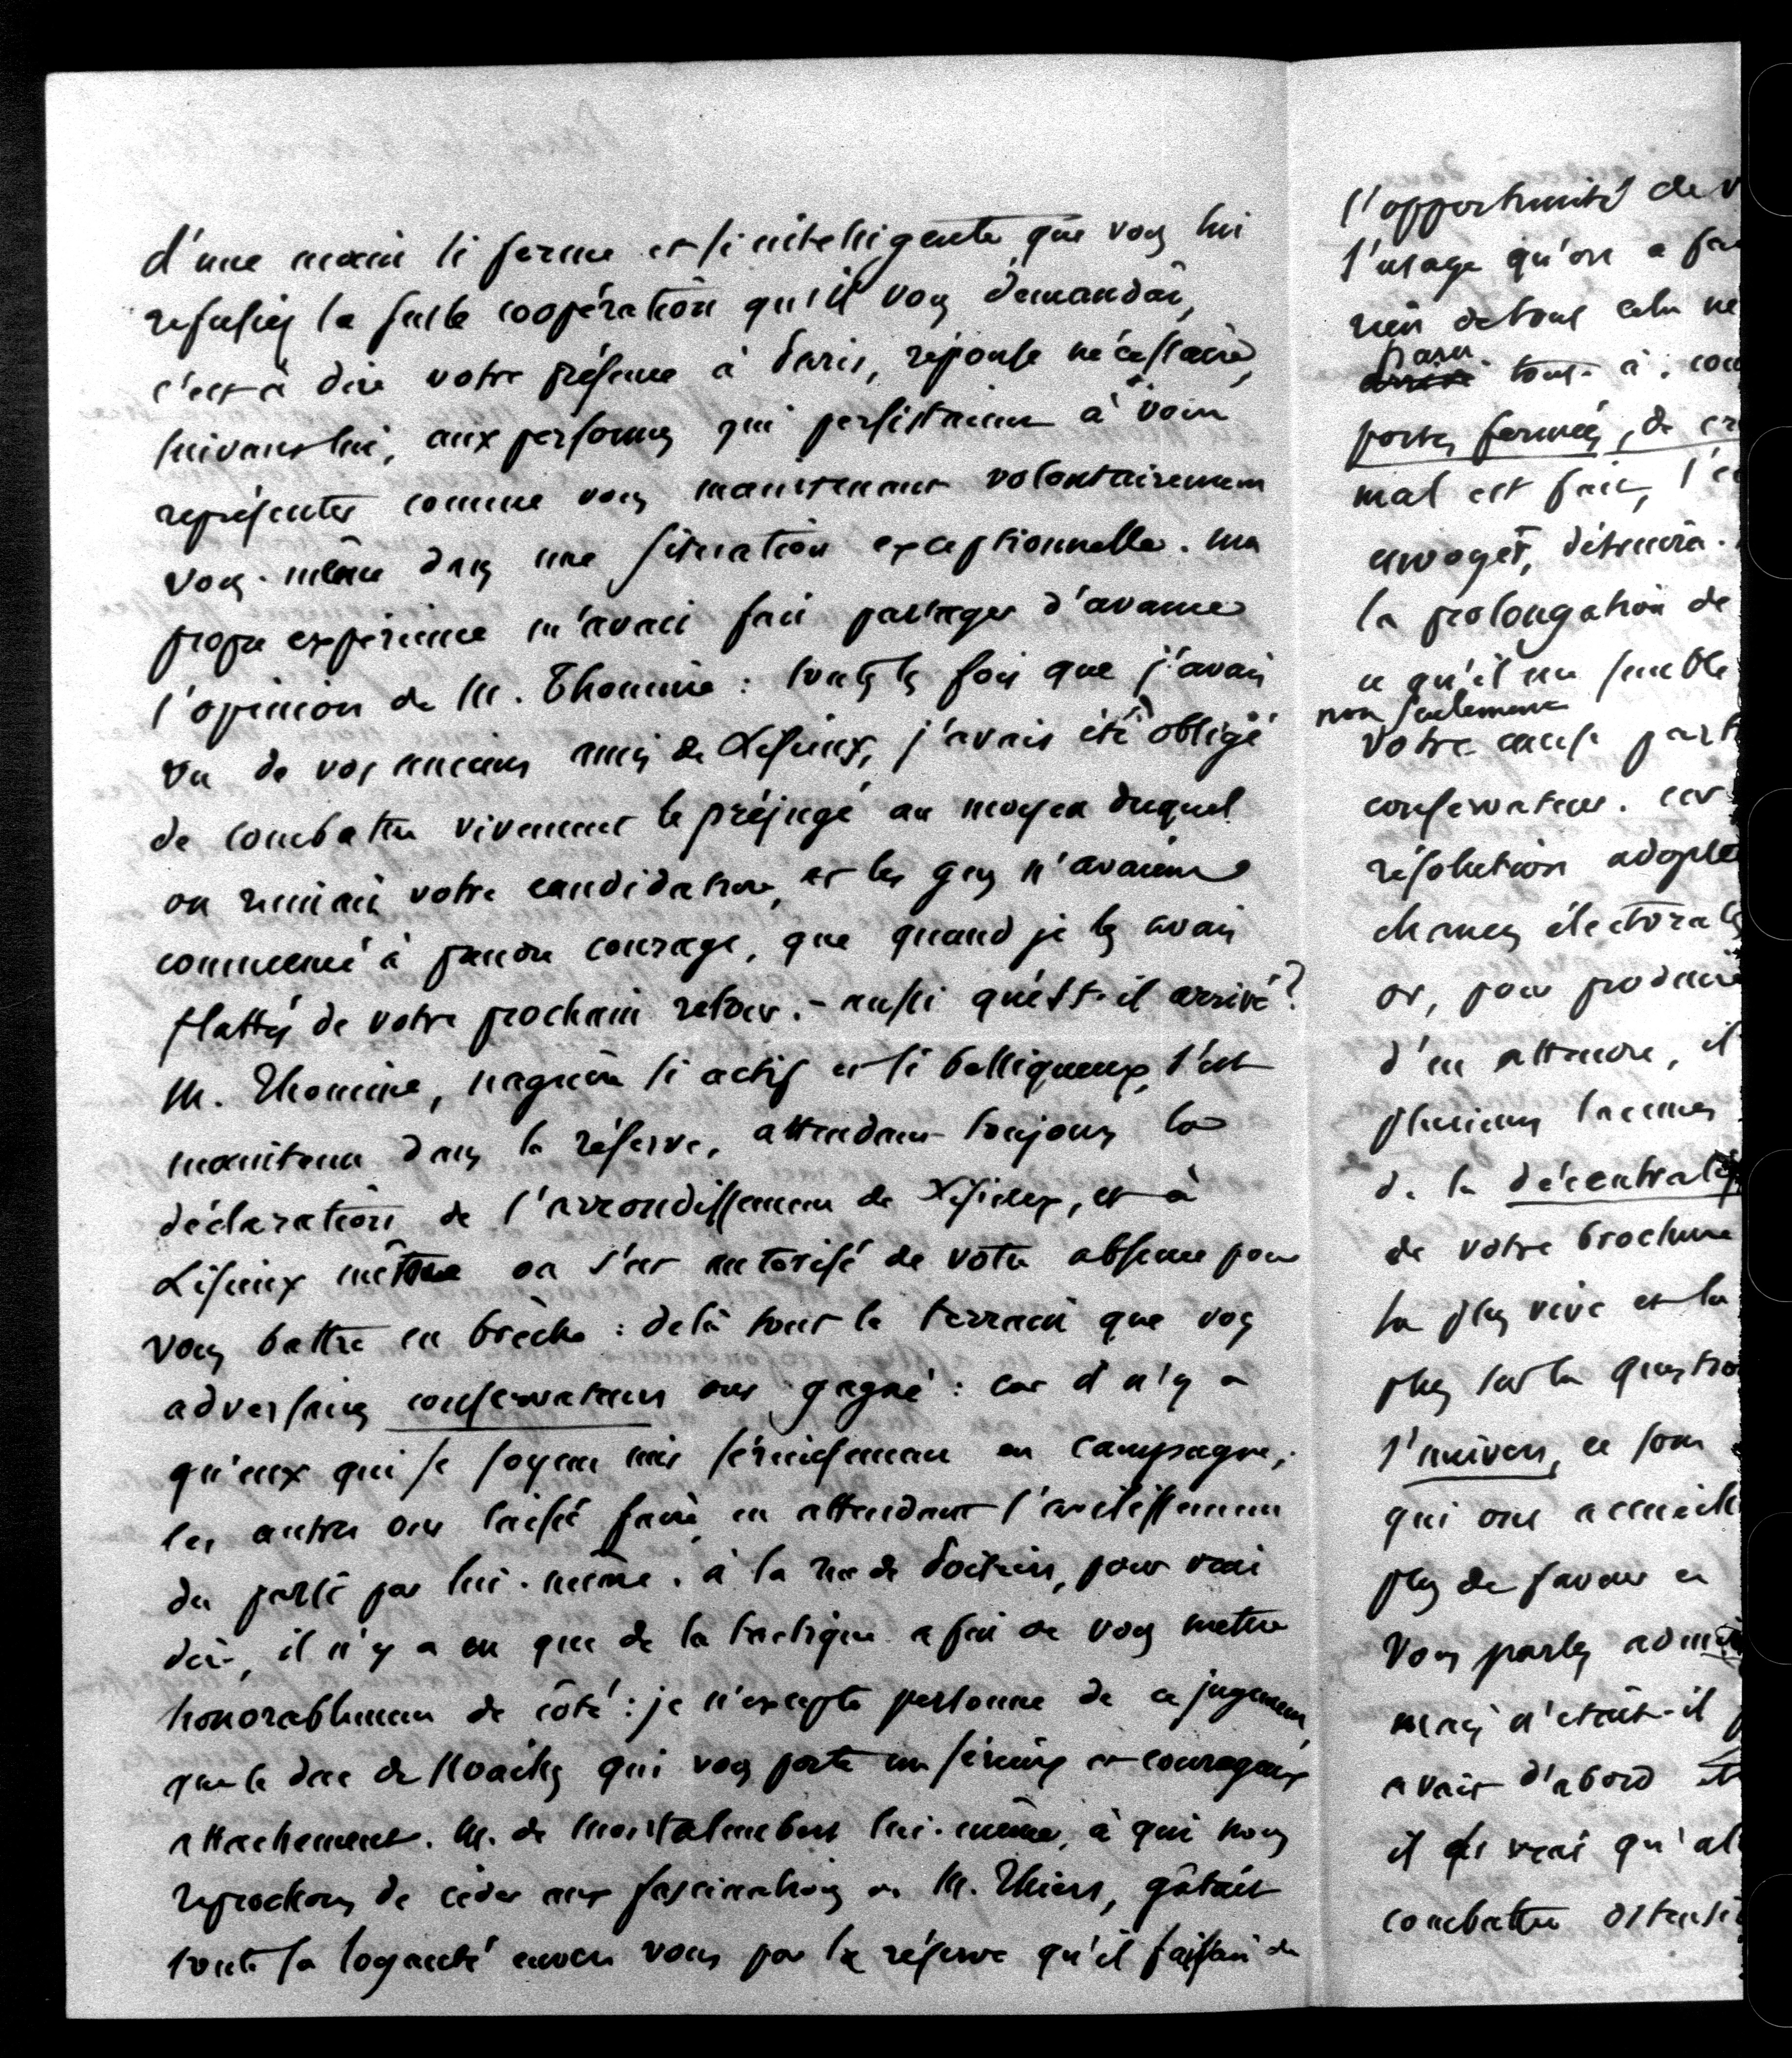 d'une main si ferme et si intelligente, que vous lui
refusiez la seule coopération qu'il vous demandât,
c'est à dire votre présence à Paris, réponse nécessaire,
suivant lui, aux personnes qui persistaient à vous
représenter comme vous maintenant volontairement
vous-même dans une situation exceptionnelle. ma
propre expérience m'avait fait partager d'avance
l'opinion de M. Thomine : toutes les fois que j'avais
vu de vos anciens amis de Lisieux, j'avais été obligé
de combattre vivement le préjugé au moyen duquel
on ruinait votre candidature, et les gens n'avaient
commencé à prendre courage, que quand je les avais
flattés de votre prochain retour. - aussi qu'est-il arrivé?
M. Thomine, naguère si actif et si belliqueux, s'est
maintenu dans la réserve, attendant toujours la
déclaration de l'arrondissement de Lisieux, et à
Lisieux même on s'est autorisé de votre absence pour
vous battre en brèche : delà tout le terrain que vos
adversaires conservateurs ont gagné : car il n'y a
qu'eux qui se soyent mis sérieusement en campagne;
les autres ont laissé faire, en attendant l'avilissement
du parti par lui-même. à la rue de Poitiers, pour vrai
dire, il n'y a eu que de la tactique afin de vous mettre
honorablement de côté : je n'excepte personne de ce jugement,
que le duc de Noailles qui vous porte un sérieux et courageux
attachement. M. de Montalembert lui-même, à qui nous
reprochons de céder aux fascinations de M. Thiers, gâtait
toute sa loyauté envers vous par la réserve qu'il faisait de
l'opportunité de v
l'usage qu'on a fai
rien de tout cela ne
paru
tout à cou
portes fermées, de cr
mal est fait, l'
envoyet, détruira
la prolongation de
ce qu'il me semble
non seulement
votre cause parti
conservateur. car
résolution adoptée
chances électorales
or, pour produire
d'en attendre, il
plusieurs lacunes
de la décentralis
de votre brochure
la plus vive et la
plus sur la question
l'univers, ce sont
qui ont accueilli
plus de faveur et
Vous parlez admir
mais n'était-il p
avait d'abord
il est vrai qu'al
combattre ostensi